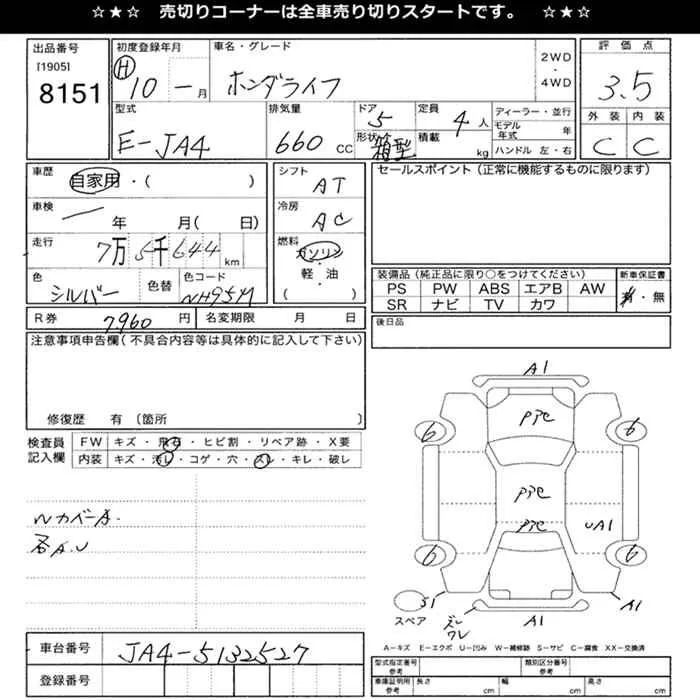 ☆★☆ 売切りコーナーは全車売り切りスタートです。 ☆★☆
出品番号
[1905]
8151
初度登録年月
H 10 - 月
車名・グレード
ホンダライフ
2WD
・
4WD
評価点
3.5
外装 内装
C C
型式
E-JA4
排気量
660 CC
ドア
5
形状
箱型
定員
4 人
積載
kg
ディーラー・並行
モデル年式 年
ハンドル 左・右
車歴
自家用・( )
車検
年 月( 日)
走行
7万5千644 km
色
シルバー
色替
色コード
NH95M
シフト
AT
冷房
AC
燃料
ガソリン
・
軽・油
( )
セールスポイント(正常に機能するものに限ります)
装備品(純正品に限り○をつけてください)
PS PW ABS エアB AW
SR ナビ TV カワ
新車保証書
有・無
R券 7,960 円
名変期限 月 日
後日品
注意事項申告欄(不具合内容等は具体的に記入して下さい)
修復歴 有 〔箇所 〕
検査員記入欄
FW キズ・飛石・ヒビ割・リペア跡・X要
内装 キズ・汚レ・コゲ・穴・スレ・キレ・破レ
NカバーA.
各A.U
A1
PPC
6 6
PPC
PPC
UA1
6 6
S1
スペア
A1
A1
A-キズ E-エクボ U-凹み W-補修跡 S-サビ C-腐食 XX-交換済
車台番号
JA4-5132527
登録番号
型式指定番号
参考
類別区分番号
参考
車庫証明用
参考
長さ cm 幅 cm 高さ cm